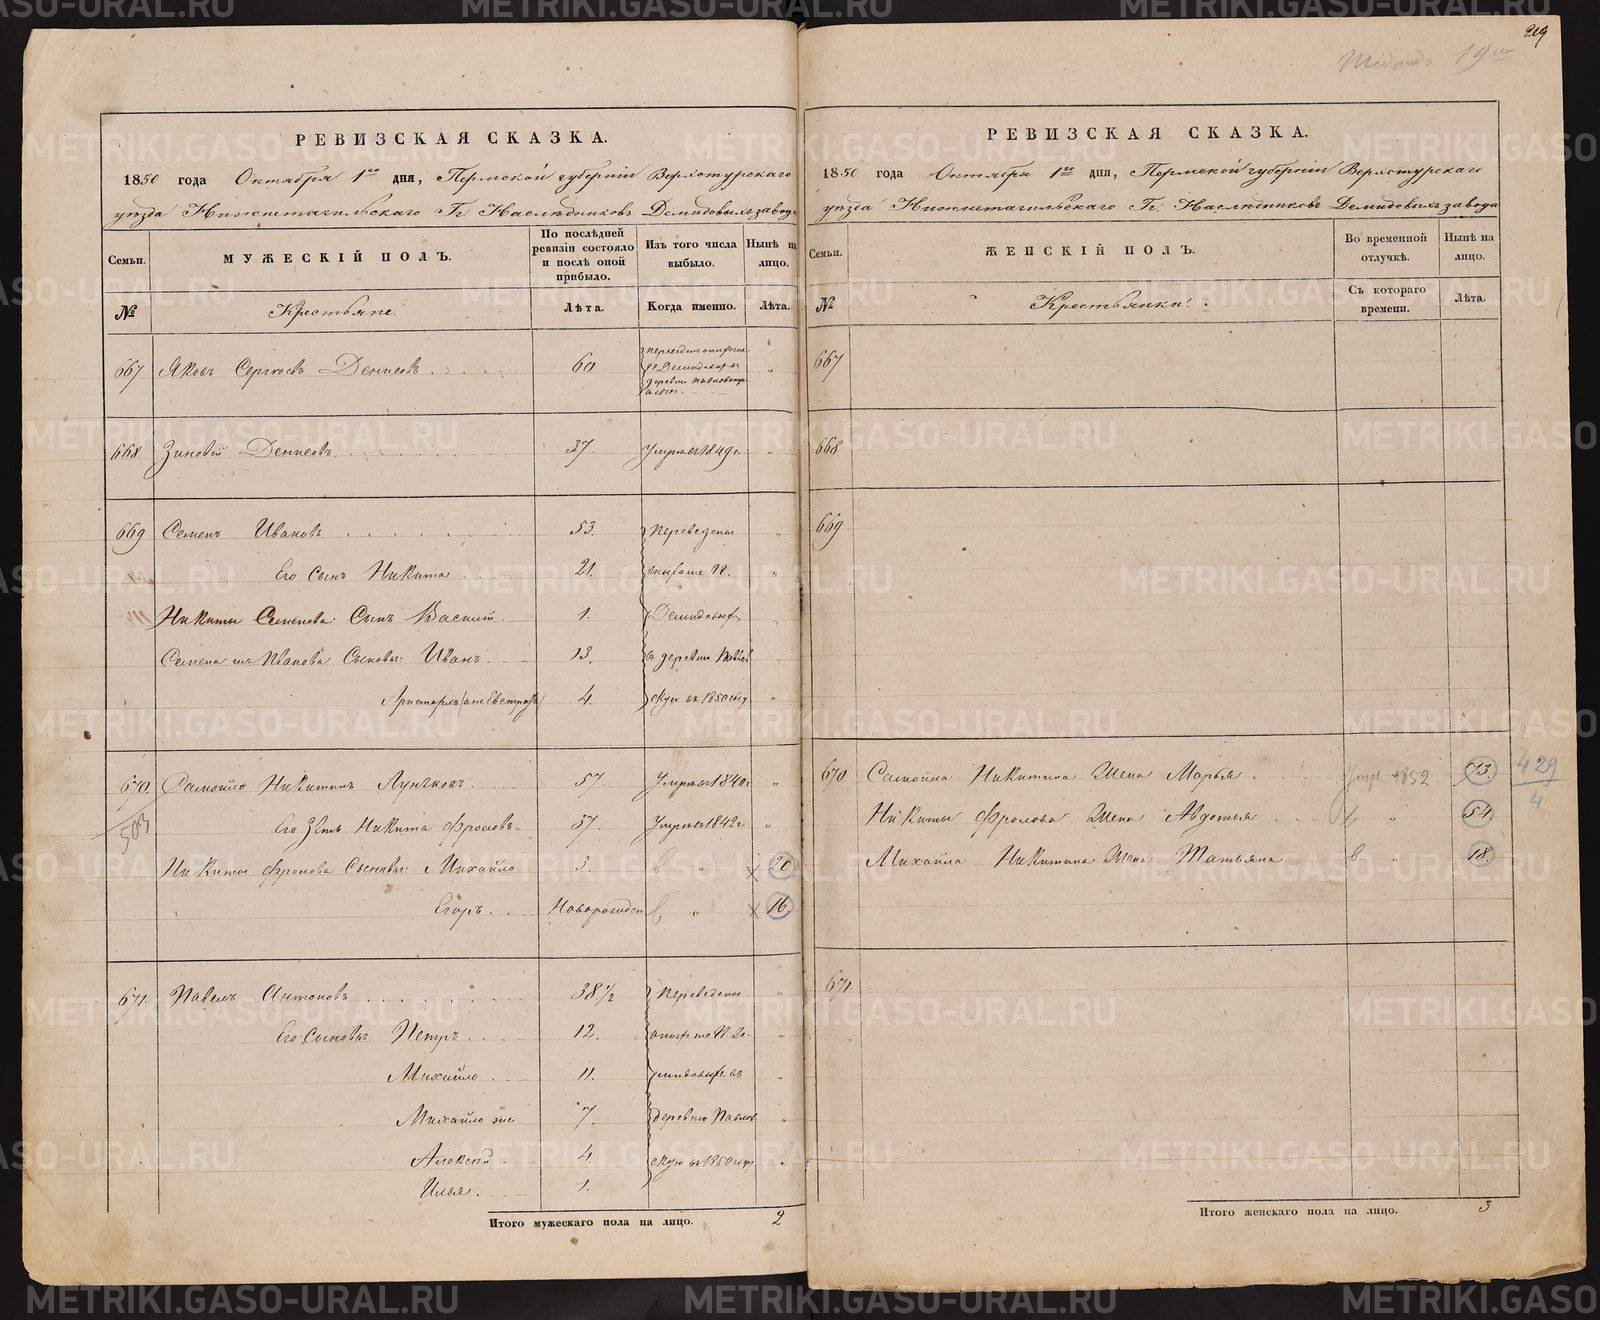 219
19
РЕВИЗСКАЯ СКАЗКА.
1850 года Октября 1го дня, Пермской губерніи Верхотурскаго
уѣзда Нижнетагильскаго Гг. Наслѣдниковъ Демидовыхъ завода
Семьи.
МУЖЕСКІЙ ПОЛЪ.
По послѣдней ревизіи состояло и послѣ оной прибыло.
Изъ того числа выбыло.
Нынѣ на лицо.
№
Крестьяне.
Лѣта.
Когда именно.
Лѣта.
667 Яковъ Сергѣевъ Денисовъ 60 "
668 Зиновій Денисовъ 37. Умръ въ 1849 г. "
669 Семенъ Ивановъ 53. Переведены "
Его Сынъ Никита 21. "
Никиты Семенова Сынъ Василій 1. "
Семена же Иванова Сыновья: Иванъ 13. въ деревню "
4. въ 1850 году "
670. Самойло Никитинъ Лунѣковъ 57. Умръ въ 1840 г "
503
Его Зять Никита Фроловъ 37. Умръ въ 1842 г "
Никиты Фролова Сыновья: Михайло 3. " 20
Егоръ Новорожден " 16
671. Павелъ Антоновъ 38 1/2 Переведены "
Его Сыновья Петръ 12. "
Михайло 11. "
Михайло же 7. деревню Павлов "
Алексѣй 4. скую въ 1850 году "
Илья 1.
Итого мужескаго пола на лицо. 2
РЕВИЗСКАЯ СКАЗКА.
1850 года Октября 1го дня, Пермской губерніи Верхотурскаго
уѣзда Нижнетагильскаго Гг. Наслѣдниковъ Демидовыхъ завода
Семьи.
ЖЕНСКІЙ ПОЛЪ.
Во временной отлучкѣ.
Нынѣ на лицо.
№
Крестьянки.
Съ котораго времени.
Лѣта.
667
668
669
670 Самойла Никитина Жена Марья 1852 73. 429
4
Никиты Фролова Жена Авдотья " 54.
Михайла Никитина Жена Татьяна " 18.
671.
Итого женскаго пола на лицо. 3
METRIKI.GASO-URAL.RU